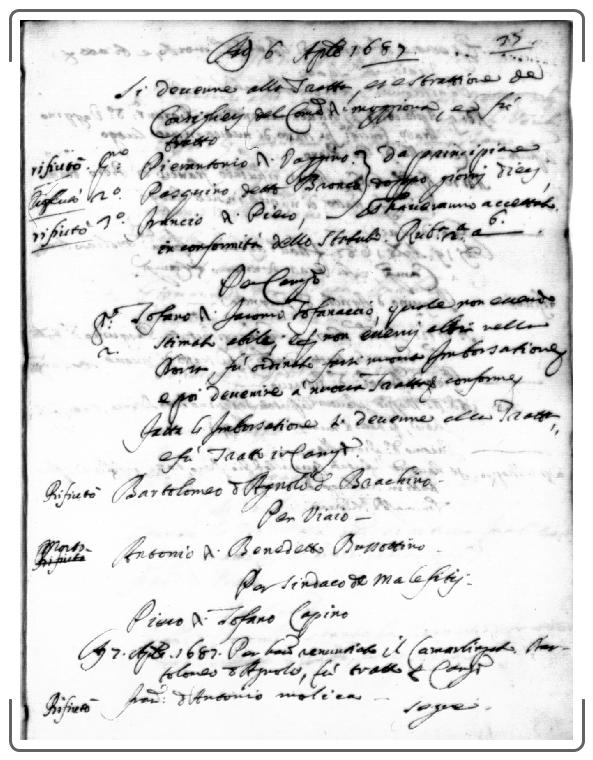 Adj 6 Aple 1687 27.
Si devenne alla Tratta, et estrattione de
Consiglieri del Comne d'Imopiona, e fù
tratto
rifiutò. Pmo Pierantonio di Vaggino. da principiare
rifiutò 2o. Pasquino detto Bronco doppo giorni dieci
rifiutò 3o. Francio di Piero, che haveranno accettato
in conformità dello Statuto. Rub. 6.
Per Camgo
Po. Tofano di Jacomo Tofanaccio, quale non essendo
stimato abile, essi non essersi altri nella
Borsa fù ordinato farsi nuova Imborsatione
e poi devenire à nuova Tratta conforme
fatta la Imborsatione si devenne alla Tratta
e fù Tratto in Camgo.
Rifiutò Bartolomeo d'Agnolo d Brachino.
Per Viaio
Morto Rifiutò Antonio di Benedetto Bussottino.
Per Sindaco de Malefitij.
Piero di Tofano Capino
Adj 7. Aple. 1687. Per haver renuntiato il Camarlingato Bar-
tolomeo d'Agnolo, fù tratto Camgo
Rifiutò d'Antonio molica
segue.